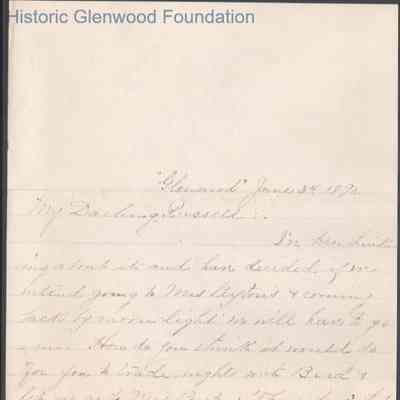 Historic Glenwood Foundation
"Glenwood" June 24 189
My Darling Russell.
I've been
ing about it and have decided if we
intend going to Mrs & coming
back by moon light we will have to go
soon. How do you think it would do
for you to trade nights with Bird &